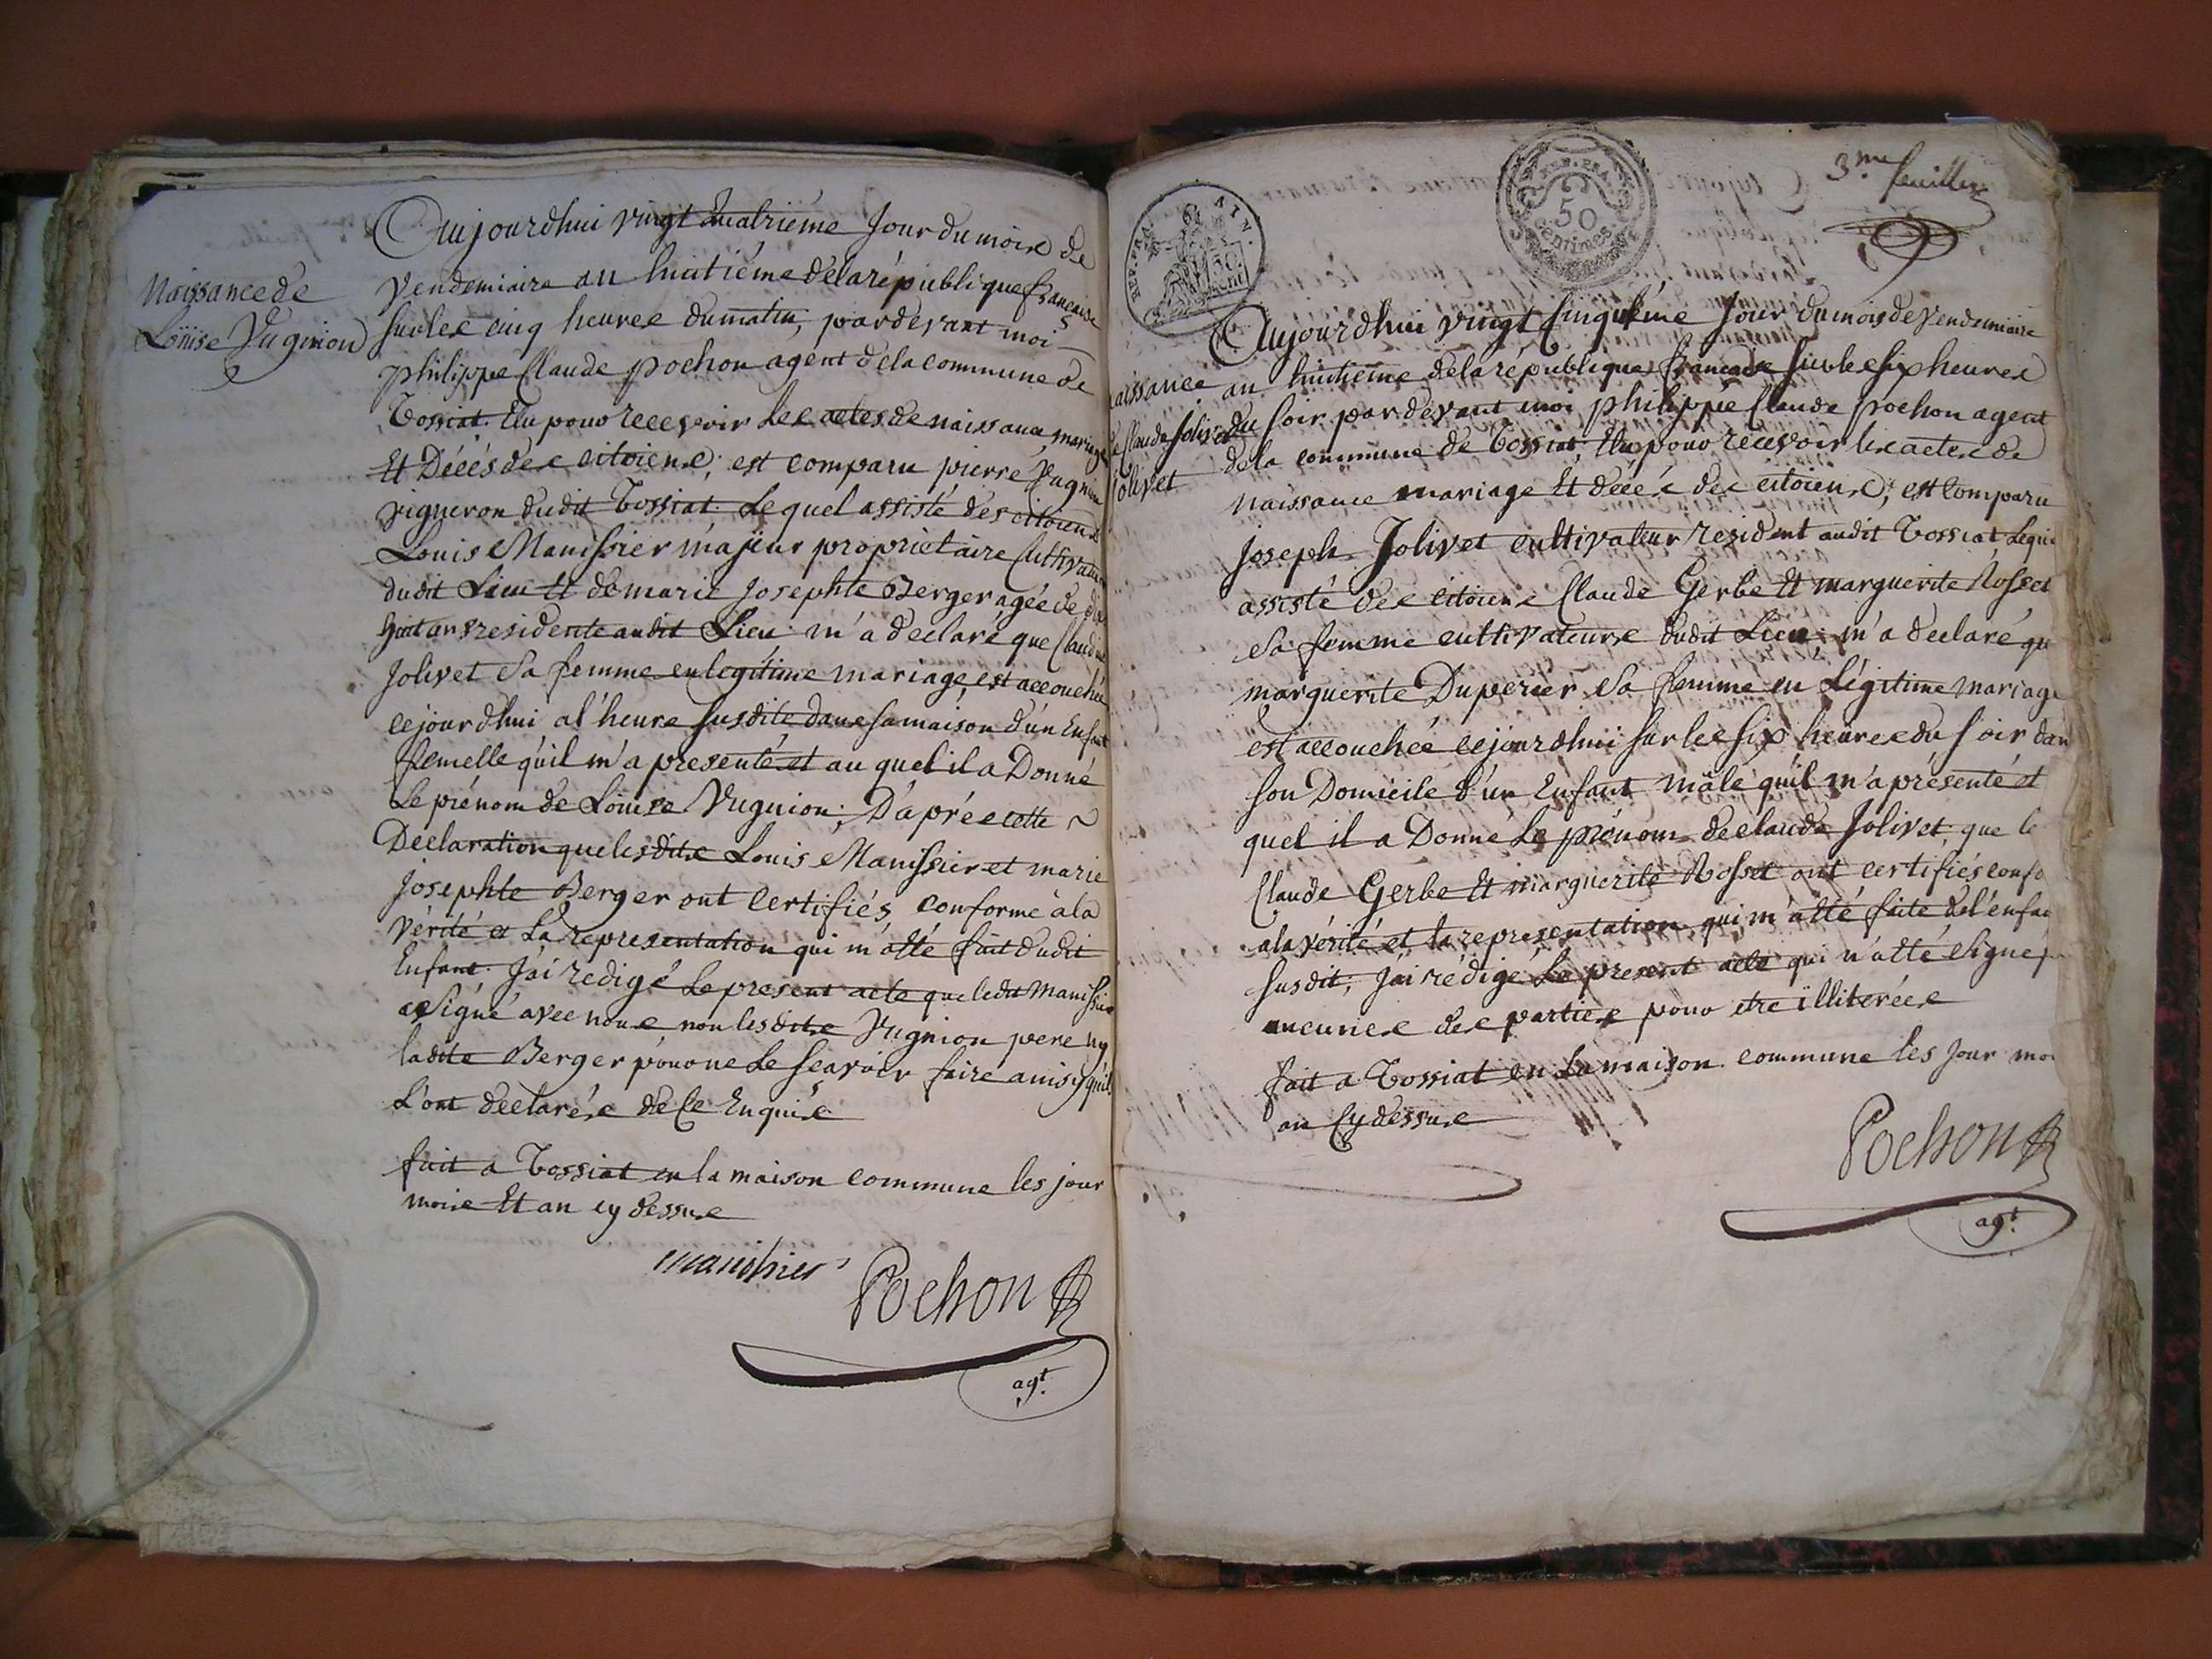 Naissance de
Louise Vugnion
Aujourdhui vingt Quatrieme Jour du mois de
Vendemiaire an huitiéme de la républiquefrançaise
sur les cinq heures du matin, pardevant moi
philippe Claude pochon agent de la commune de
Tossiat Elu pour recevoir Les actes de naissance mariage
Et Décés des citoiens; est comparu pierre Vugnion
vigneron dudit Tossiat. Lequel assisté des citoiens
Louis Manissier majeur proprietaire Cultivateur
dudit Lieu Et de marie Josephte Berger agée de dix
huit ans residente audit Lieu m'a declaré que Claudine
Jolivet sa femme en legitime mariage, est accouchée
cejourdhui al'heure susdite, dans sa maison d'un Enfant
femelle qu'il m'a presenté et au quel il a Donné
Le prénom de Louise Vugnion; D'aprés cette
Declaration que lesdits Louis Manissier et marie
Josephte Berger ont certifiés conforme à la
vérité et La representation qui m'a été fait dudit
Enfant. J'ai redigé Le present acte que ledit Manissier
a Signé avec nous non lesdits Vugnion pere ny
ladite Berger pour ne Le scavoir faire ainsy qu'ils
L'ont declarés de Ce Enquis
fait a Tossiat en la maison commune les jour
mois Et an cy dessus
manissier Pochon
agt.
3.me feuillez
REP. FRA. AIN.
50 cent
REP. FRA.
50
Centimes
Naissance
de Claude Jolivet
Jolivet
Aujourdhui vingt Cinquiéme Jour du mois de Vendemiaire
an huitiéme de la république francaise sur les six heures
du soir par devant moi philippe Claude pochon agent
de la commune de Tossiat, Elu pour recevoir les actes de
naissance mariage Et décés des citoiens; est Comparu
Joseph Jolivet cultivateur resident audit Tossiat Lequel
assisté des citoiens Claude Gerbe Et marguerite Rosset
sa femme cultivateurs dudit Lieu m'a declaré que
marguerite Duperier sa femme en Légitime mariage
est accouchée cejourdhui sur les six heures du soir dans
son Domicile d'un Enfant mâle qu'il m'a présenté et
quel il a Donné Le prénom de claude Jolivet, que le
Claude Gerbe Et marguerite Rosset ont certifiés confo
a la vérité et la representation qui m'a été faite de l'enfan
susdit; J'ai rédigé Le present acte qui n'a été Signé p
aucunes des parties pour etre illiterées
fait a Tossiat en La maison commune les Jour moi
an Cy dessus
Pochon
agt.